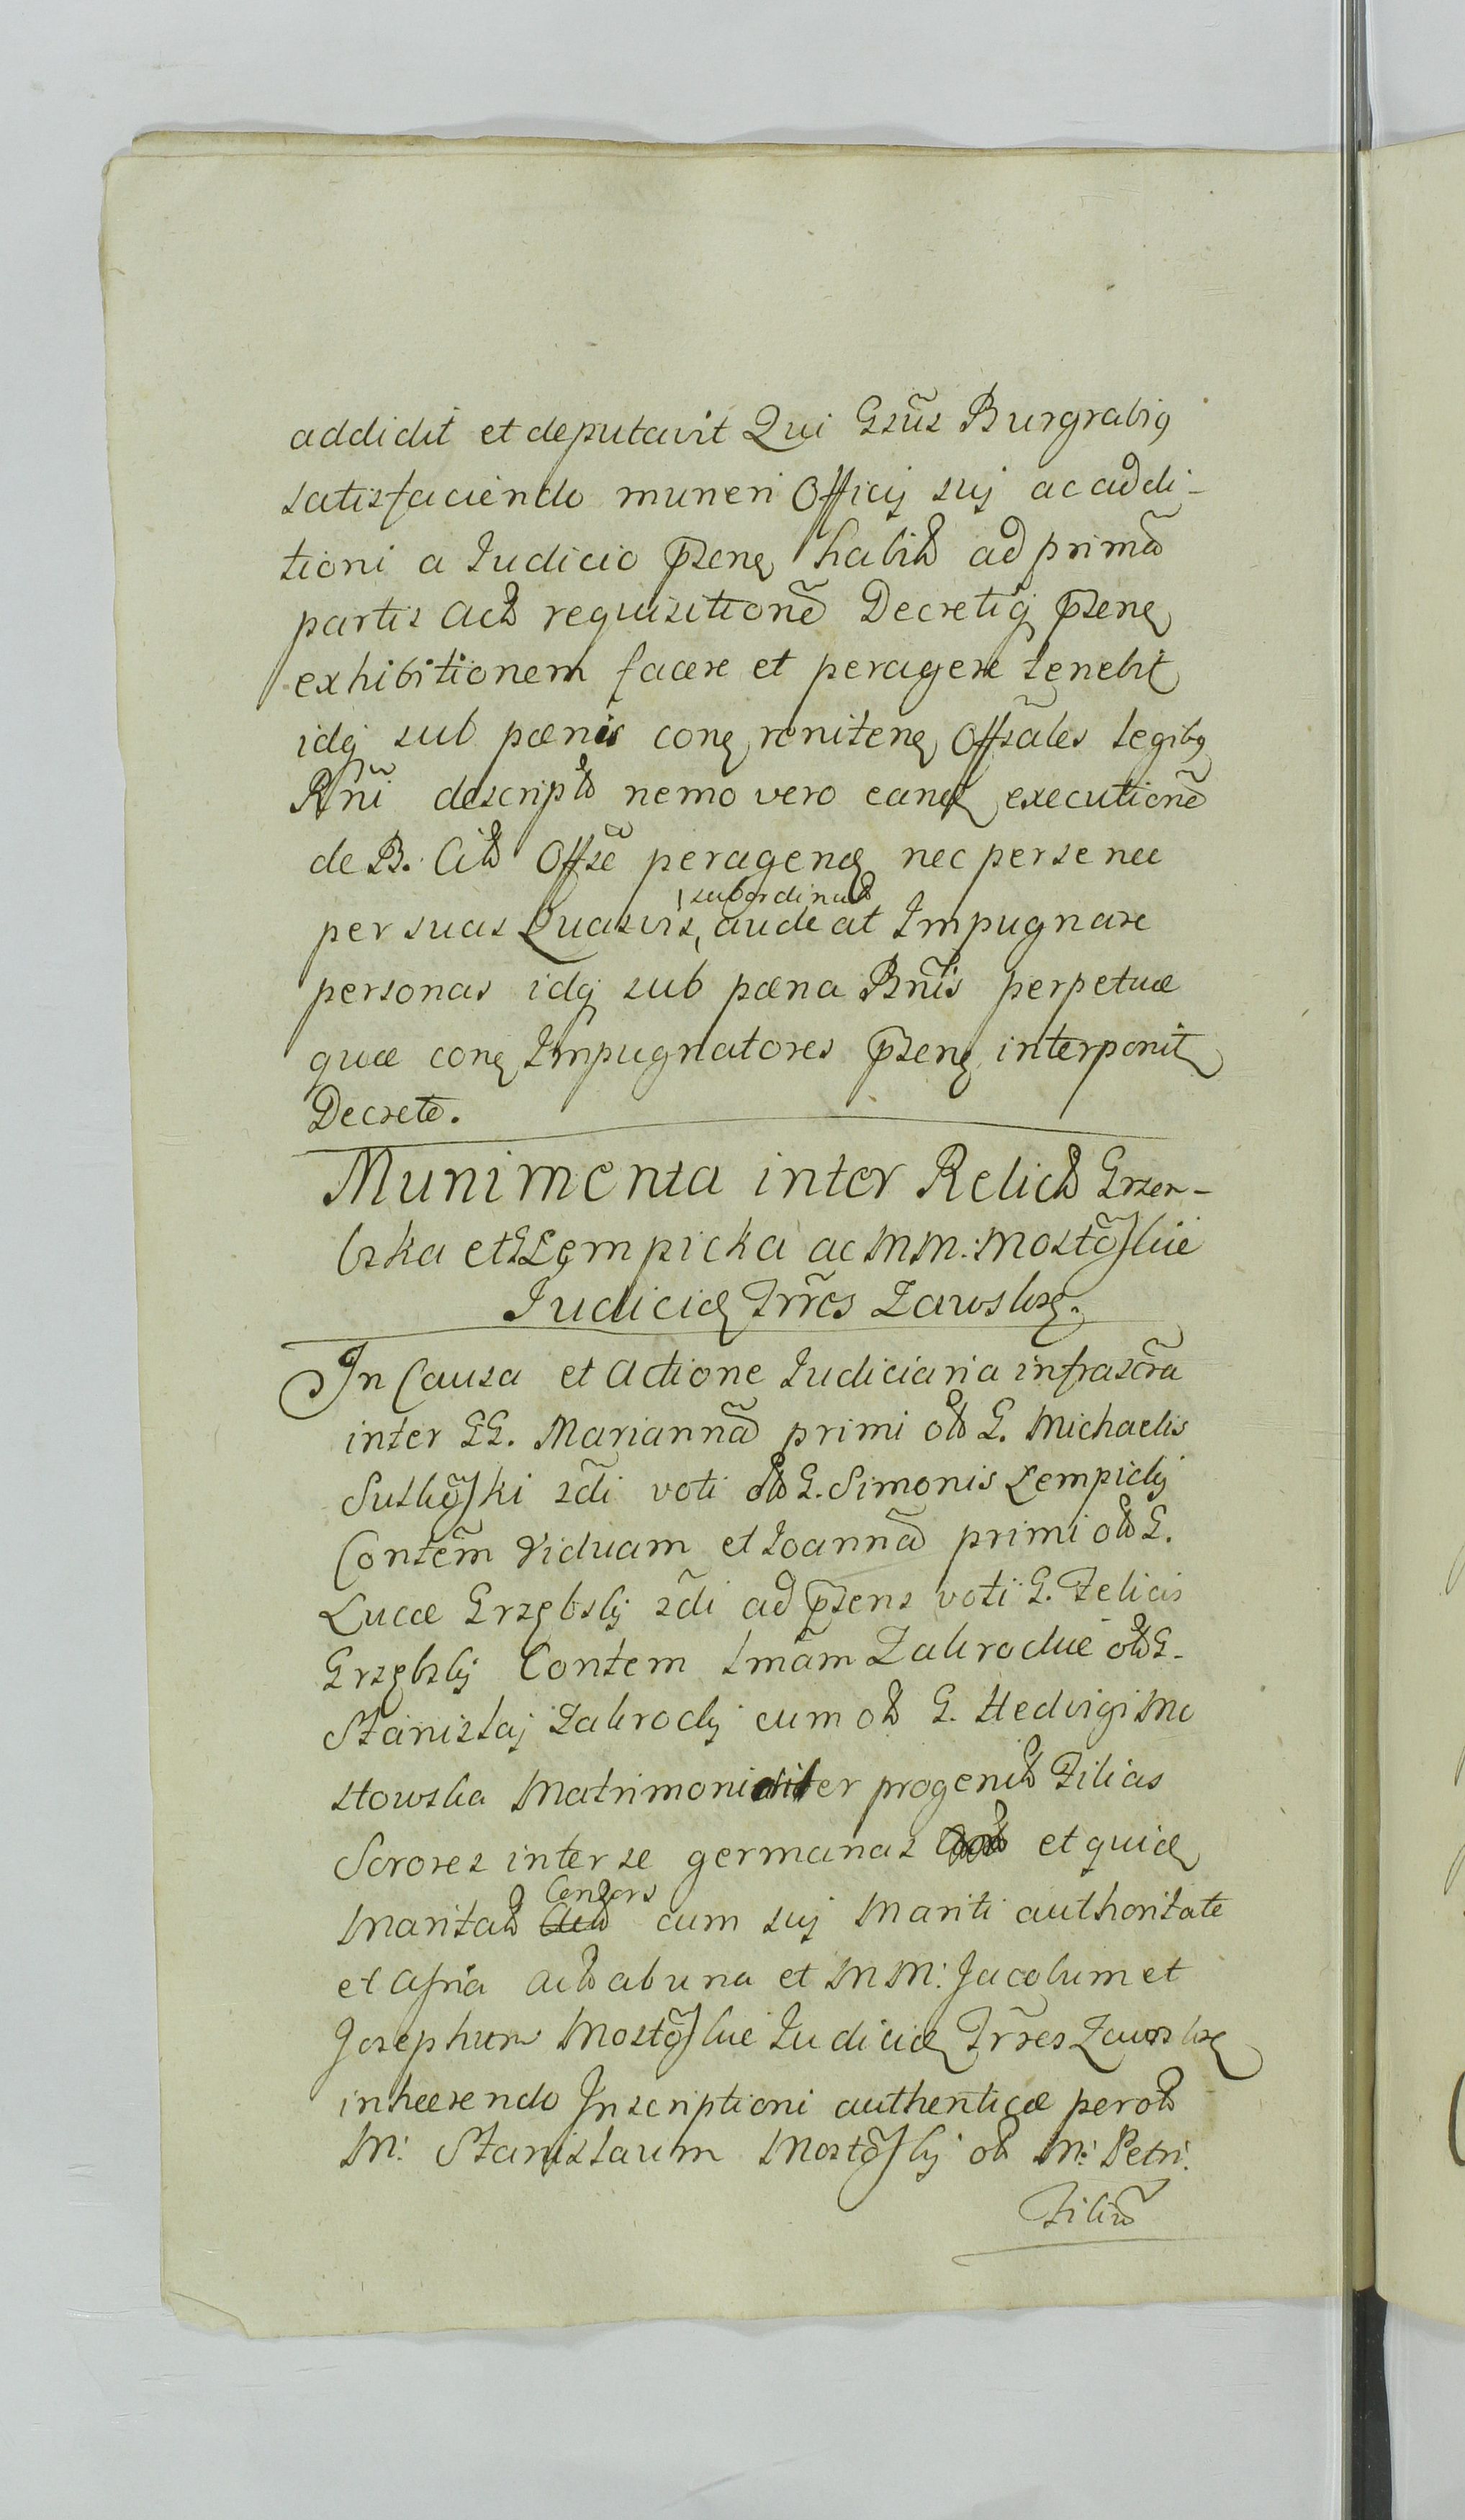 addidit et deputavit Qui Gsũs Burgrabiꝯ
satisfaciendo muneri Officij suj ac addi-
tioni a Judicio p̃senꝫ habitꝭ ad primã
partis actꝭ requisitionẽ Decretiqꝫ p̃senꝫ
exhibitionem facere et peragere tenebitꝫ
idqꝫ sub pœnis conꝫ renitenꝫ Offãles legibꝯ
Rñi descriptꝭ nemo vero eandꝫ executionẽ
de B. Citꝭ Offsẽ peragendꝫ nec per se nec
per suas Quasvis, aude at Impugnare
subordinatꝭ
personas idqꝫ sub pœna Bñis perpetuæ
quæ conꝫ Impugnatores p̃senꝫ interponitꝫ
Decretõ.
Munimenta inter Relictꝭ Grzem-
bska et Łempicka ac MM: Mostõskie
Judicidꝫ Trr̃es Zawskrzꝫ.
In Causa et Actione Judiciaria infrascr̃a
inter GG. Mariannã primi olꝭ G. Michaelis
Sutkõski sc̃di voti olꝭ G. Simonis Łempickj
Contẽm Viduam et Joannã primi olꝭ G.
Lucæ Grzębskj sc̃di ad p̃sens voti G. Felicis
Grzębskj Contem Imãm Zakrockie olꝭ G.
Stanislaj Zakrockj cum olꝭ G. Hedvigi Mo
stowska Matrimonialiter progenitꝭ Filias
Sorores inter se germanas et quidꝫ
Maritatꝭ Consors cum suj Mariti authoritate
et Asñia actꝭ ab una et MM: Jacobum et
Josephum Mostõskie Judicidꝫ Trr̃es Zawskrzꝫ
inhærendo Inscriptioni authenticæ per olꝭ
M: Stanislaum Mostõskj olꝭ M: Petri
Filiũ